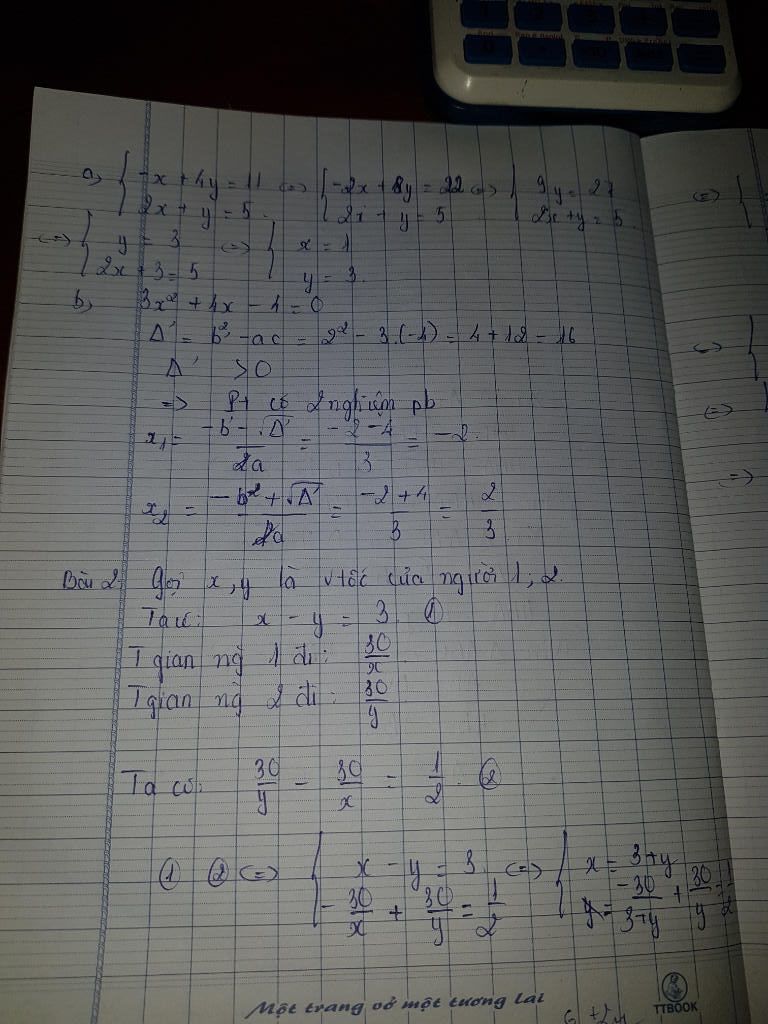 a, { -x + 4y = 11 <=> { -2x + 8y = 22 <=> { 9y = 27
2x + y = 5. 2x + y = 5 2x + y = 5.
<=> { y = 3 <=> { x = 1
2x + 3 = 5 y = 3.
b, 3x² + 4x - 4 = 0
Δ' = b'² - ac = 2² - 3.(-4) = 4 + 12 = 16
Δ' > 0
=> Pt có 2 nghiệm pb
x₁ = (-b' - √Δ')/2a = (-2-4)/3 = -2.
x₂ = (-b' + √Δ')/a = (-2+4)/3 = 2/3
Bài 2 Gọi x, y là vtốc của người 1, 2.
Ta có: x - y = 3 ①
T gian ng 1 đi: 30/x
T gian ng 2 đi: 30/y
Ta có: 30/y - 30/x = 1/2 ②
① ② <=> { x - y = 3 <=> { x = 3+y
-30/x + 30/y = 1/2 -30/3+y + 30/y = 1/2
Một trang vở một tương lai
TTBOOK